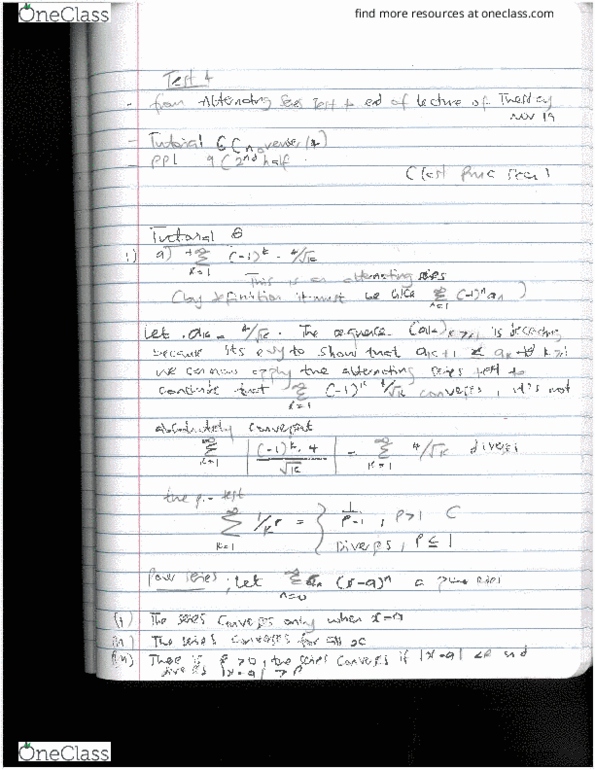 OneClass
find more resources at oneclass.com
Test 4
- from Alternating Series Test to end of lecture of Tuesday
NOV 19
- Tutorial 6 (November 14)
- PPL 9 (2nd half
Tutorial 6
1) a) +∞ Σ k=1 (-1)^k · 4/√k
This is an alternating series
(by definition it must be like Σ n=1 (-1)^n an )
Let ak = 4/√k . The sequence (ak) k≥1 is decreasing
because its easy to show that ak+1 < ak ∀ k≥1
we can now apply the alternating series test to
conclude that ∞ Σ k=1 (-1)^k 4/√k converges, it's not
absolutely convergent
∞ Σ k=1 | (-1)^k · 4 / √k | = ∞ Σ k=1 4/√k diverges
the p-test
∞ Σ k=1 1/k^p = { 1/p-1 , p>1 C
Diverges, p ≤ 1
Power series; Let ∞ Σ n=0 an (x-a)^n a power series
(i) The series converges only when x=a
(ii) The series converges for all x
(iii) There is R>0, the series converges if |x-a| <R and
diverges |x-a| > R
OneClass